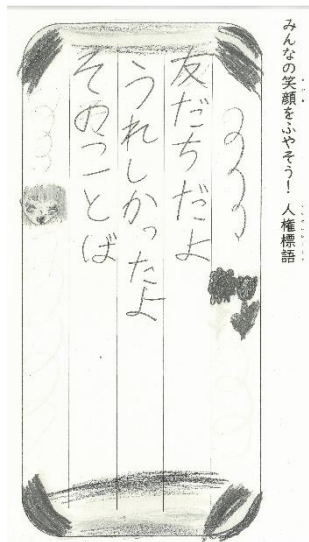 みんなの笑顔をふやそう！ 人権標語
友だちだよ
うれしかったよ
そのことば